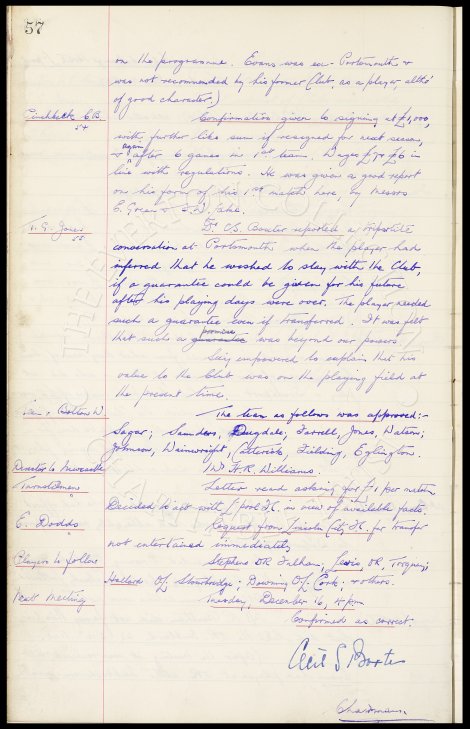 57
on the programme. Evans was ex- Portsmouth &
was not recommended by his former Club, as a player, altho'
of good character.)
Pinchbeck C.B.
54
Confirmation given to signing at £1,000,
with further like sum if resigned for next season,
& again after 6 games in 1st team. Wages £7 & £6 in
line with regulations. He was given a good report
on his form of his 1st match here, by Messrs
E. Green &
T. G. Jones
55
Dr. C.S. Baxter reported a tripartite
conversation at Portsmouth when the player had
inferred that he wished to stay with the Club,
if a guarantee could be given for his future
after his playing days were over. The player needed
such a guarantee even if transferred. It was felt
that such a promise was beyond our powers
Secy. empowered to explain that his
value to the Club was on the playing field at
the present time.
Team v. Bolton W.
The team as follows was approved:-
Sagar; Saunders, Dugdale; Farrell, Jones, Watson;
Johnson, Wainwright, Catterick, Fielding, Eglington.
Director to Newcastle
Mr. A.R. Williams.
Turnstilemen
Letter read asking for £1 per match
Decided to act with L'pool F.C. in view of available facts
E. Dodds
Request from Lincoln City F.C. for transfer
not entertained immediately
Players to follow
Stephens OR Fulham, Lewis, OR, Torquay;
Hallard OL Stourbridge: Downing OL Cork; & others.
Next Meeting
Tuesday, December 16, 4 pm
Confirmed as correct.
Cecil S Baxter
Chairman.